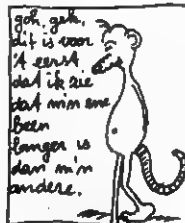 goh, goh,
dit is voor
't eerst
dat ik zie
dat m'n ene
been
langer is
dan m'n
andere.